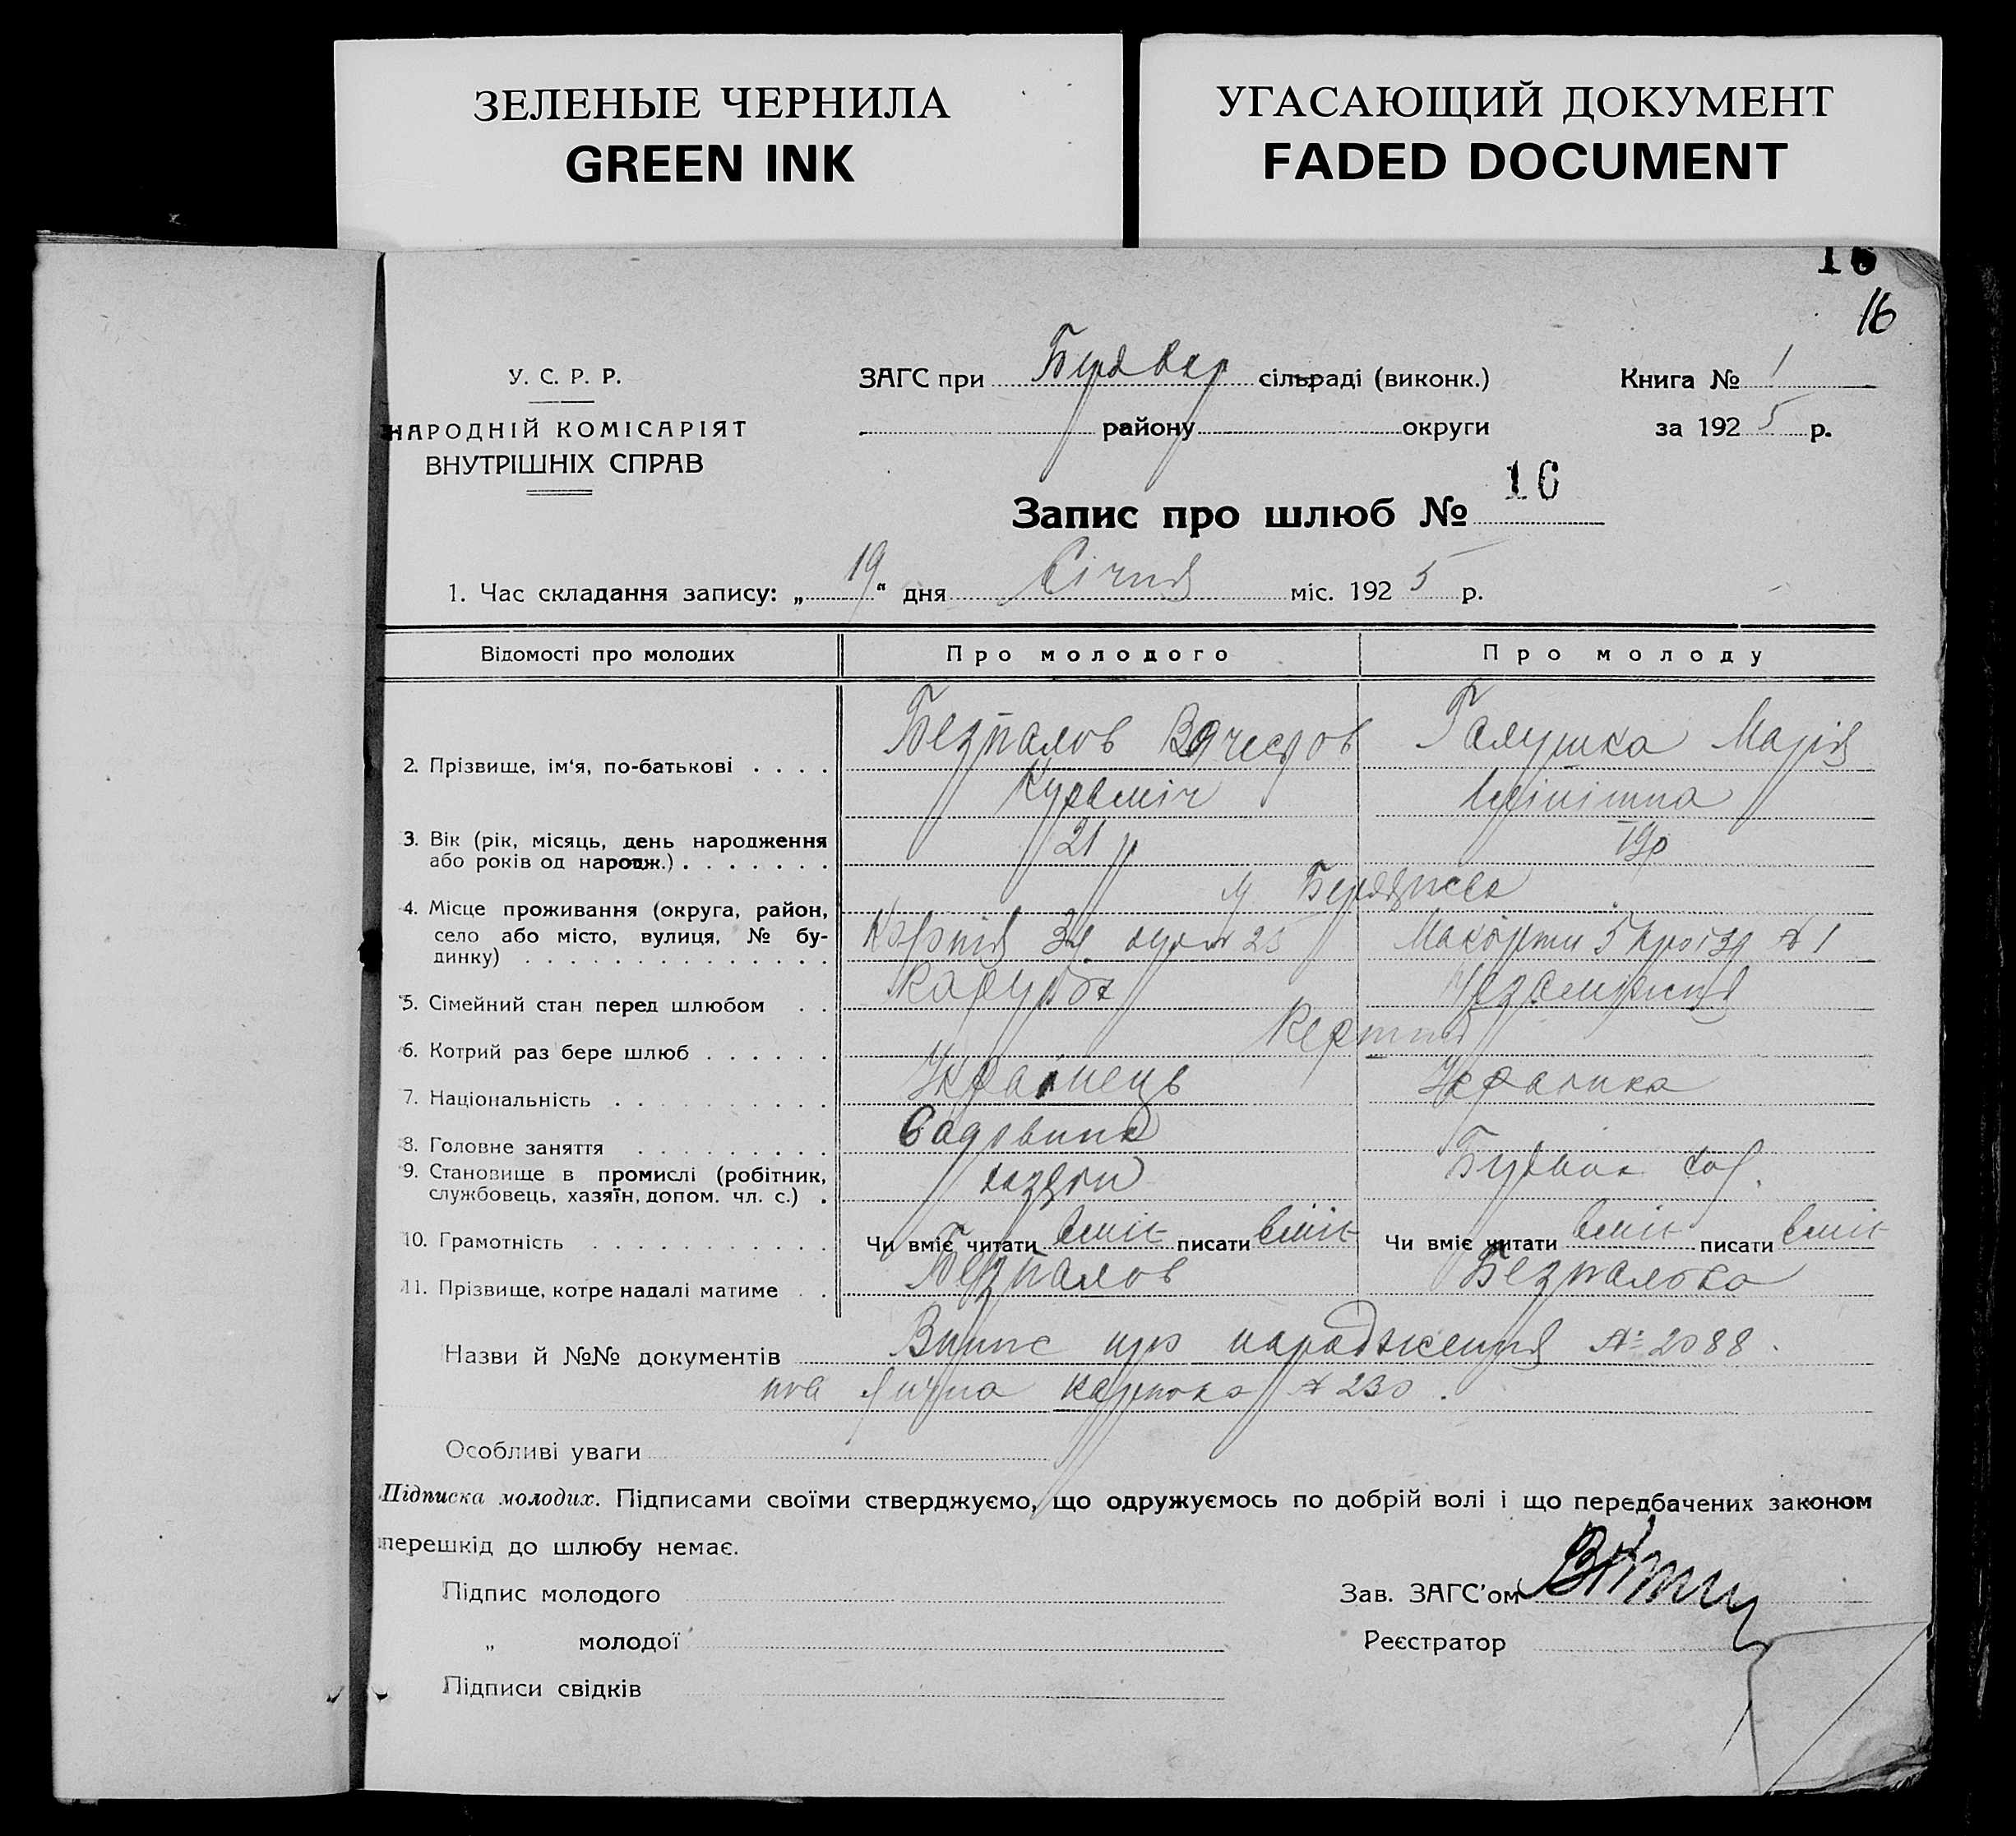 ЗЕЛЕНЫЕ ЧЕРНИЛА
GREEN INK
УГАСАЮЩИЙ ДОКУМЕНТ
FADED DOCUMENT
16
16
У. С. Р. Р.
НАРОДНІЙ КОМІСАРІЯТ
ВНУТРІШНІХ СПРАВ
ЗАГС при сільраді (виконк.) Книга № 1
району округи за 1925 р.
Запис про шлюб № 16
1. Час складання запису: „19“ дня Січня міс. 1925 р.
Відомості про молодих Про молодого Про молоду
2. Прізвище, ім'я, по-батькові Безпалов Вячеслов Галушка Марія
3. Вік (рік, місяць, день народження або років од народж.) 21 р 19р
м Бердичев
4. Місце проживання (округа, район, село або місто, вулиця, № будинку) 25 5 проїзд № 1
5. Сімейний стан перед шлюбом Незаміжня
6. Котрий раз бере шлюб
7. Національність Українець Українка
8. Головне заняття Садовник
9. Становище в промислі (робітник, службовець, хазяїн, допом. чл. с.) хазяїн
10. Грамотність Чи вміє читати вміє писати вміє Чи вміє читати вміє писати вміє
11. Прізвище, котре надалі матиме Безпалов Безпалова
Назви й №№ документів Випис про народження № 2088
картка № 230.
Особливі уваги
Підписка молодих. Підписами своїми стверджуємо, що одружуємось по добрій волі і що передбачених законом
перешкід до шлюбу немає.
Підпис молодого Зав. ЗАГС'ом
„ молодої Реєстратор
Підписи свідків